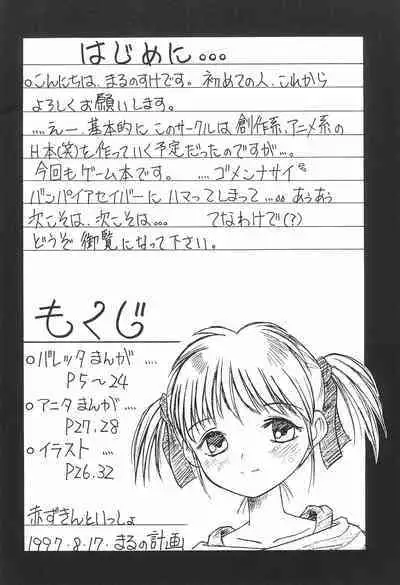 はじめに。。。
○こんにちは、まるのすけです。初めての人、これから
よろしくお願いします。
....えー、基本的にこのサークルは創作系、アニメ系の
H本(笑)を作っていく予定だったのですが...。
今回もゲーム本です。 ....ゴメンナサイ
バンパイアセイバーにハマってしまって...。。あぅあぅ
次こそは、次こそは... てなわけで(?)
どうぞ御覧になって下さい。
もくじ
○バレッタまんが....
P5〜24
○アニタまんが....
P27.28
○イラスト....
P26.32
赤ずきんといっしょ
1997.8.17.まるの計画